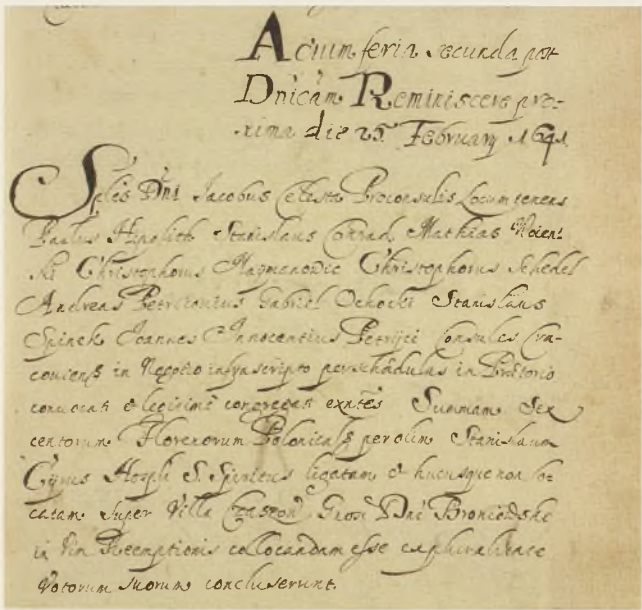 Actum feria secunda post
Dnicam Reminiscere pro-
xima die 25 February 1641
Sples Dni Jacobus Celesta Proconsulis Locumtenens
Paulus Hippolith Stanislaus Conrad Mathias Woien-
ski Christophorus Naymanowic Christophorus Schedel
Andreas Petriconius Gabriel Ochocki Stanislaus
Spinek Joannes Innocentius Petrijci Consules Cra-
coviens in Negotio infrascripto per schadulas in Prætorio
convocati & legitime congregati exntes Summam Sex
centorum Florenorum Polonicals per olim Stanislaum
Cyrus Hospli S. Spiritus ligatam & hucusque non lo-
catam super Villa Gnosi Dni
in Vim Reemptionis collocandam esse ex pluralitate
Votorum suorum concluserunt.